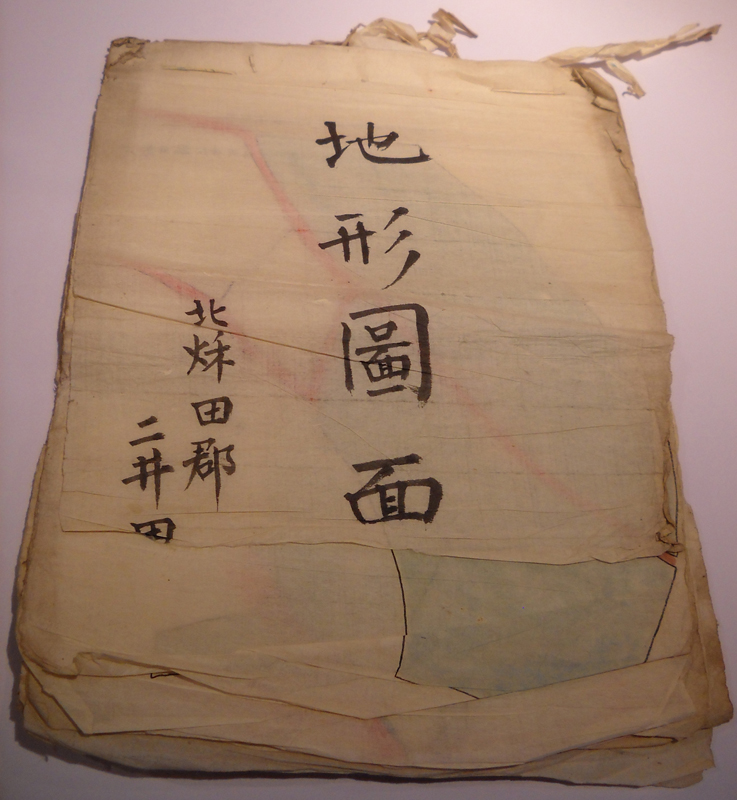 地形圖面
北秌田郡
二井田